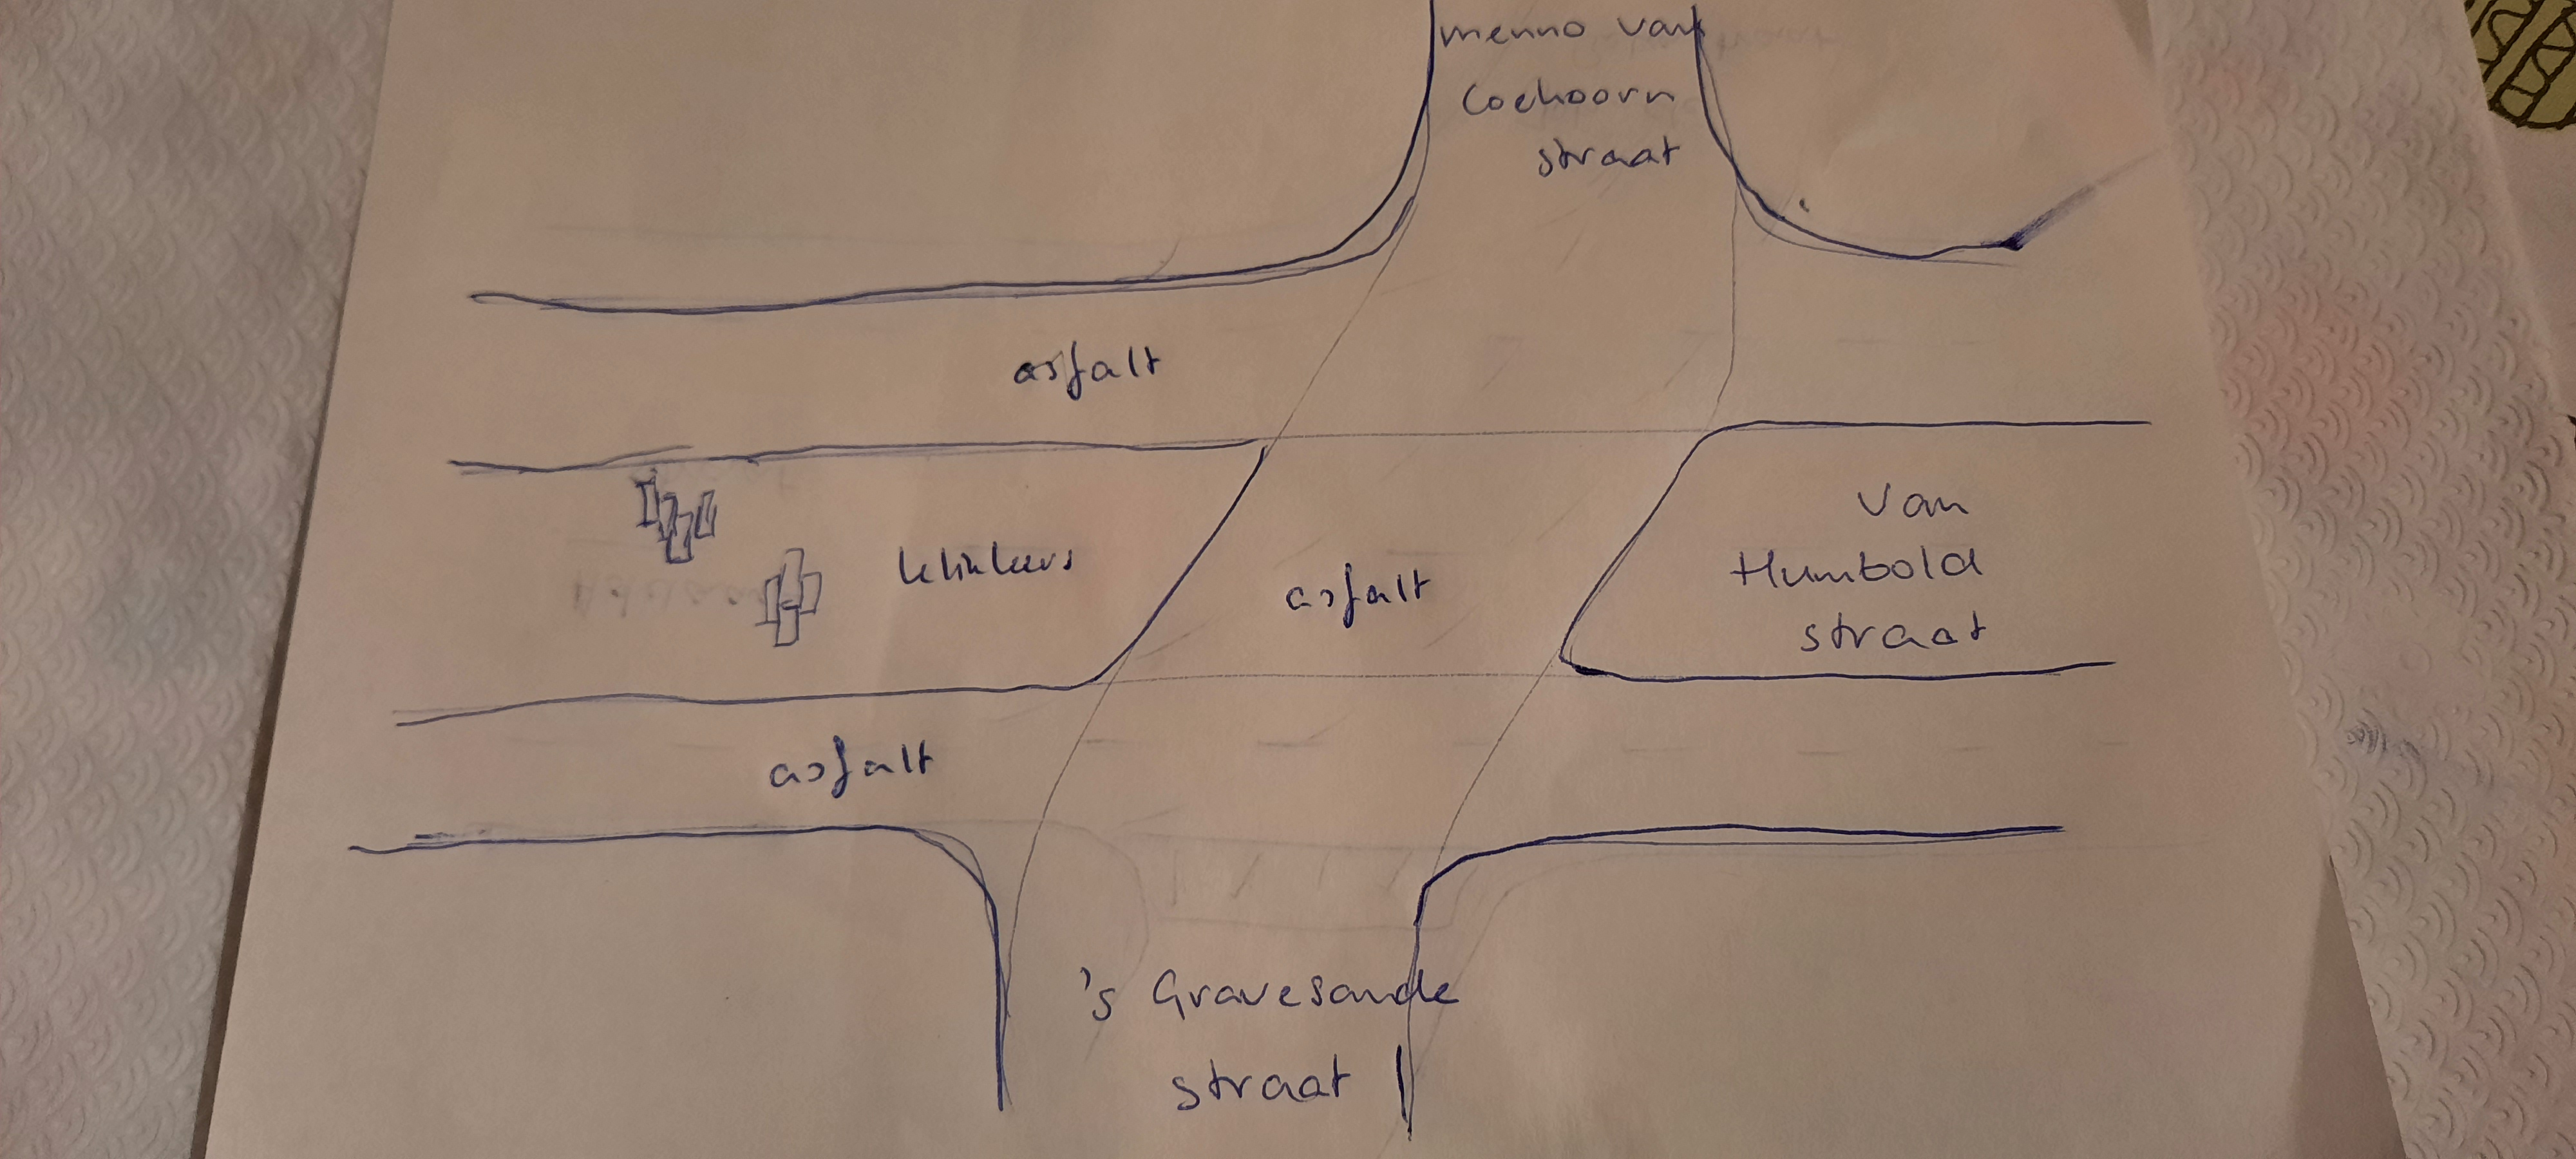 menno van
Coehoorn
straat
asfalt
klinkers
asfalt
Van
Humbold
straat
asfalt
's Gravesande
straat